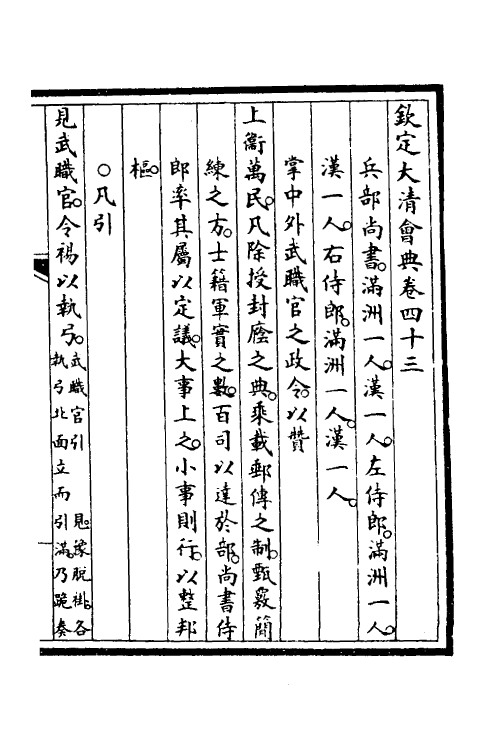 欽定大清會典卷四十三
兵部尚書。滿洲一人。漢一人。左侍郎。滿洲一人。
漢一人。右侍郎。滿洲一人。漢一人。
掌中外武職官之政令。以贊
上衞萬民。凡除授封廕之典。乘載郵傳之制。甄覈簡
練之方。士籍軍實之數。百司以達於部。尚書侍
郎率其屬以定議。大事上之。小事則行。以整邦
樞。
○凡引
見武職官。令裼以執弓。武職官引
見。豫脫褂。各
執弓北面立而引滿。乃跪奏